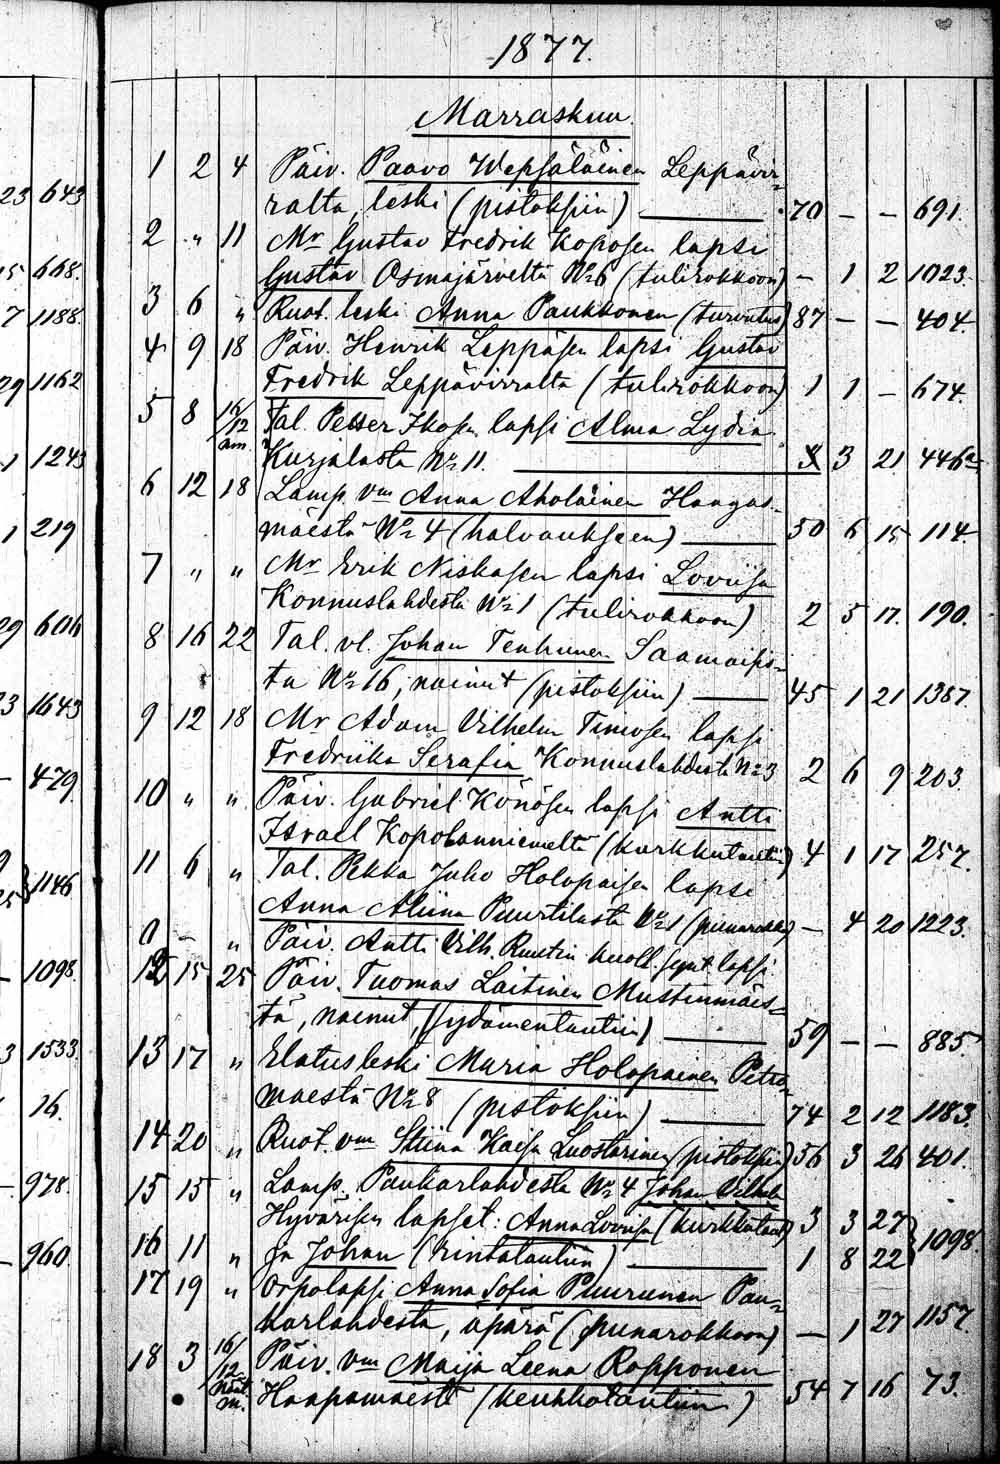 1877.
Marraskuu.
1 2 4 Päiv. Paavo Wepsäläinen Leppävir-
ralta, leski (pistoksiin) 70 — — 691.
2 " 11 Mr Gustav Fredrik Koposen lapsi
Gustav Osmajärveltä No 6 (tulirokkoon) — 1 2 1023.
3 6 " Ruot. leski Anna Paukkonen (turvotus) 87 — — 404.
4 9 18 Päiv. Henrik Leppäsen lapsi Gustav
Fredrik Leppävirralta (tulirokkoon) 1 1 — 674.
5 8 16/12 Tal. Petter Ikosen lapsi Alma Lydia
Kurjalasta No 11. 3 21 446
6 12 18 Lamp. vm Anna Aholainen Haapas-
mäestä No 4 (halvaukseen) 50 6 15 114.
7 " " Mr Erik Niskasen lapsi Loviisa
Konnuslahdesta No 1 (tulirokkoon) 2 5 17. 190.
8 16 22 Tal. vl. Johan Tenhunen Saamaisis-
ta No 16, nainut (pistoksiin) 45 1 21 1387.
9 12 18 Mr Adam Vilhelm Timosen lapsi
Fredriika Serafia Konnuslahdesta No 3 2 6 9 203
10 " " Päiv. Gabriel Könösen lapsi Antti
Israel Kopolanniemeltä (kurkkutautiin) 4 1 17 257.
11 6 " Tal. Pekka Juho Holopaisen lapsi
Anna Aliina Puurtilasta No 1 (punarokko) — 4 20 1223.
0 — " Päiv. Antti Vilh. Ruutin kuoll. synt. lapsi
12 15 25 Päiv. Tuomas Laitinen Mustinmäes-
tä, nainut, (sydämentautiin) 59 — — 885.
13 17 " Elatus leski Maria Holopainen Petro-
maestä No 8 (pistoksiin) 74 2 12 1183.
14 20 " Ruot. vm Stiina Kaisa Luostarinen (pistoksiin) 56 3 26 401.
15 15 " Lamp. Paukarlahdesta No 4 Johan Vilhelm
Hyvärisen lapset: Anna Loviisa (kurkkutaut) 3 3 27
16 11 " ja Johan (rintatautiin) 1 8 22 } 1098.
17 19 " Orpolapsi Anna Sofia Puurunen Pau-
karlahdesta, äpärä (punarokkoon) — 1 27 1157.
18 3 16/12 Päiv. vm Maija Leena Ropponen
Haapamäestä (keuhkotautiin) 54 7 16 73.
23 643
15 668.
7 1188.
29 1162
1 1243
1 219
29 606
3 1643
— 479.
} 1146
— 1098.
3 1533.
16.
— 978.
— 960.